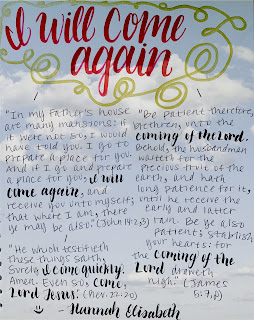 I will come
again
"In my Father's house
are many mansions: if
it were not so, I would
have told you. I go to
prepare a place for you.
And if I go and prepare
a place for you, I will
come again, and
receive you unto myself;
that where I am, there
ye may be also." (John 14:2,3)
"He which testifieth
these things saith,
Surely I come quickly.
Amen. Even so, come,
Lord Jesus." (Rev. 22:20)
"Be patient therefore,
brethren, unto the
coming of the Lord.
Behold, the husbandman
waiteth for the
precious fruit of the
earth, and hath
long patience for it,
until he receive the
early and latter
rain. Be ye also
patient; stablish
your hearts: for
the coming of the
Lord draweth
nigh." (James
5:7,8)
- Hannah Elisabeth